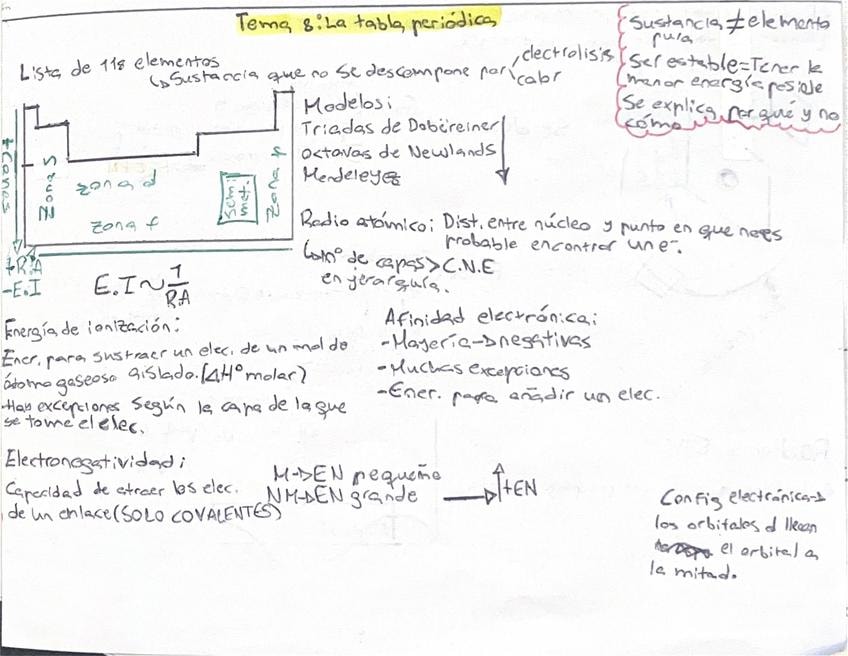 Tema 8: La tabla periódica
Sustancia ≠ elemento
pura
Ser estable = Tener la
menor energía posible
Se explica por qué y no
cómo
Lista de 118 elementos
↳ Sustancia que no se descompone por electrolisis
calor
Modelos:
Triadas de Dobëreiner
Octavas de Newlands
Mendeleyez
+Capas
Zona s
zona d
zona f
Semi
met.
Zona p
+R.A
-E.I
E.I ~ 1/R.A
Radio atómico: Dist. entre núcleo y punto en que no es
probable encontrar un e-.
↳ nº de capas > C.N.E
en jerarquía.
Energía de ionización:
Ener. para sustraer un elec. de un mol de
átomo gaseoso aislado. (ΔHº molar)
Hab excepciones según la capa de la que
se tome el elec.
Afinidad electrónica:
-Mayería → negativas
-Muchas excepciones
-Ener. para añadir un elec.
Electronegatividad:
Capacidad de atraer los elec.
de un enlace (SOLO COVALENTES)
M → EN pequeño
NM → EN grande → ↑+EN
Config electrónica →
los orbitales d llenan
el orbital a
la mitad.